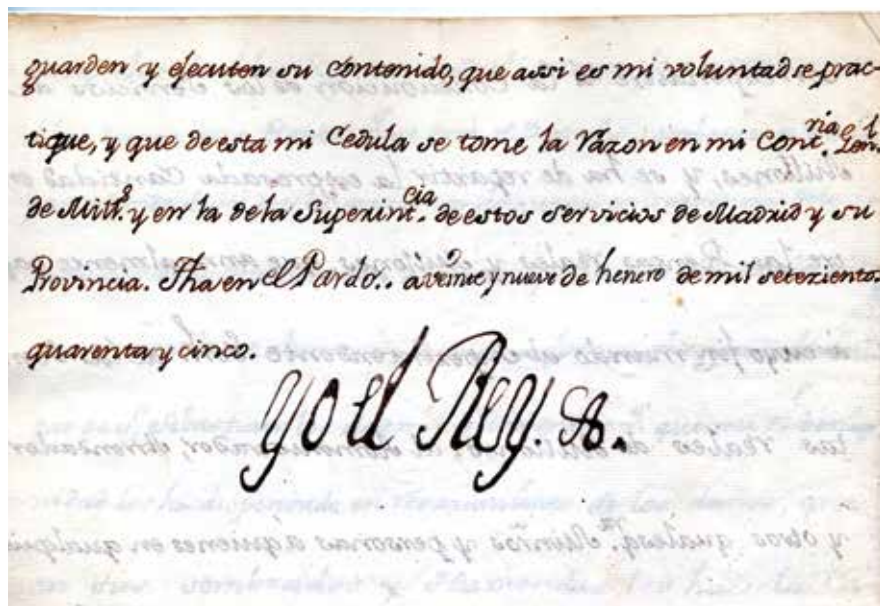 guarden y ejecuten su contenido, que assi es mi voluntad se prac-
tique, y que de esta mi Cedula se tome la Razon en mi Cont.ria Gen.l
de Mill.s y en la de la Superint.cia de estos servicios de Madrid y su
Provincia. Fha en el Pardo.. a veinte y nueve de henero de mil setezientos
quarenta y cinco.
Yo el Rey.